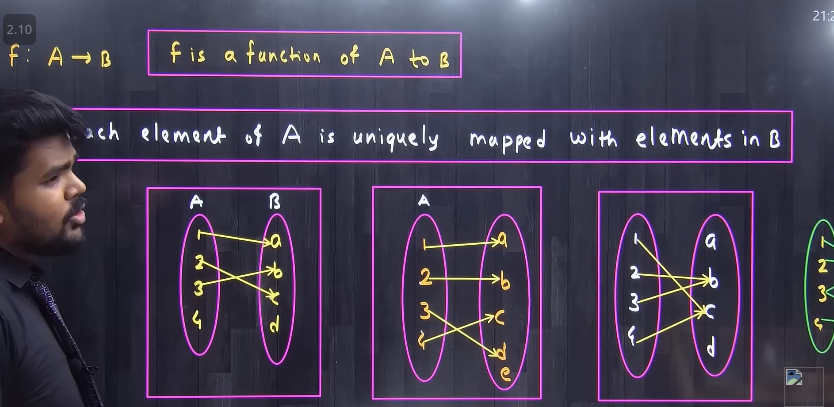 2.10
21:2
f: A → B
f is a function of A to B
ach element of A is uniquely mapped with elements in B
A B
1 a
2 b
3 c
4 d
A
1 a
2 b
3 c
4 d
e
1 a
2 b
3 c
4 d
1
2
3
4